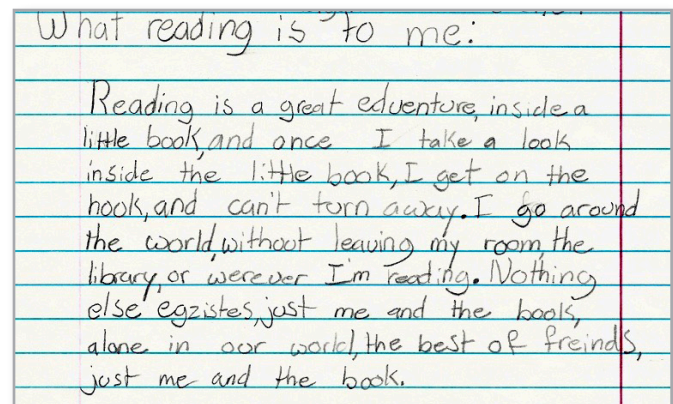 What reading is to me:
Reading is a great edventure, inside a
little book, and once I take a look
inside the little book, I get on the
hook, and can't turn away. I go around
the world, without leaving my room, the
library, or werever I'm reading. Nothing
else egzistes, just me and the book,
alone in our world, the best of freinds,
just me and the book.